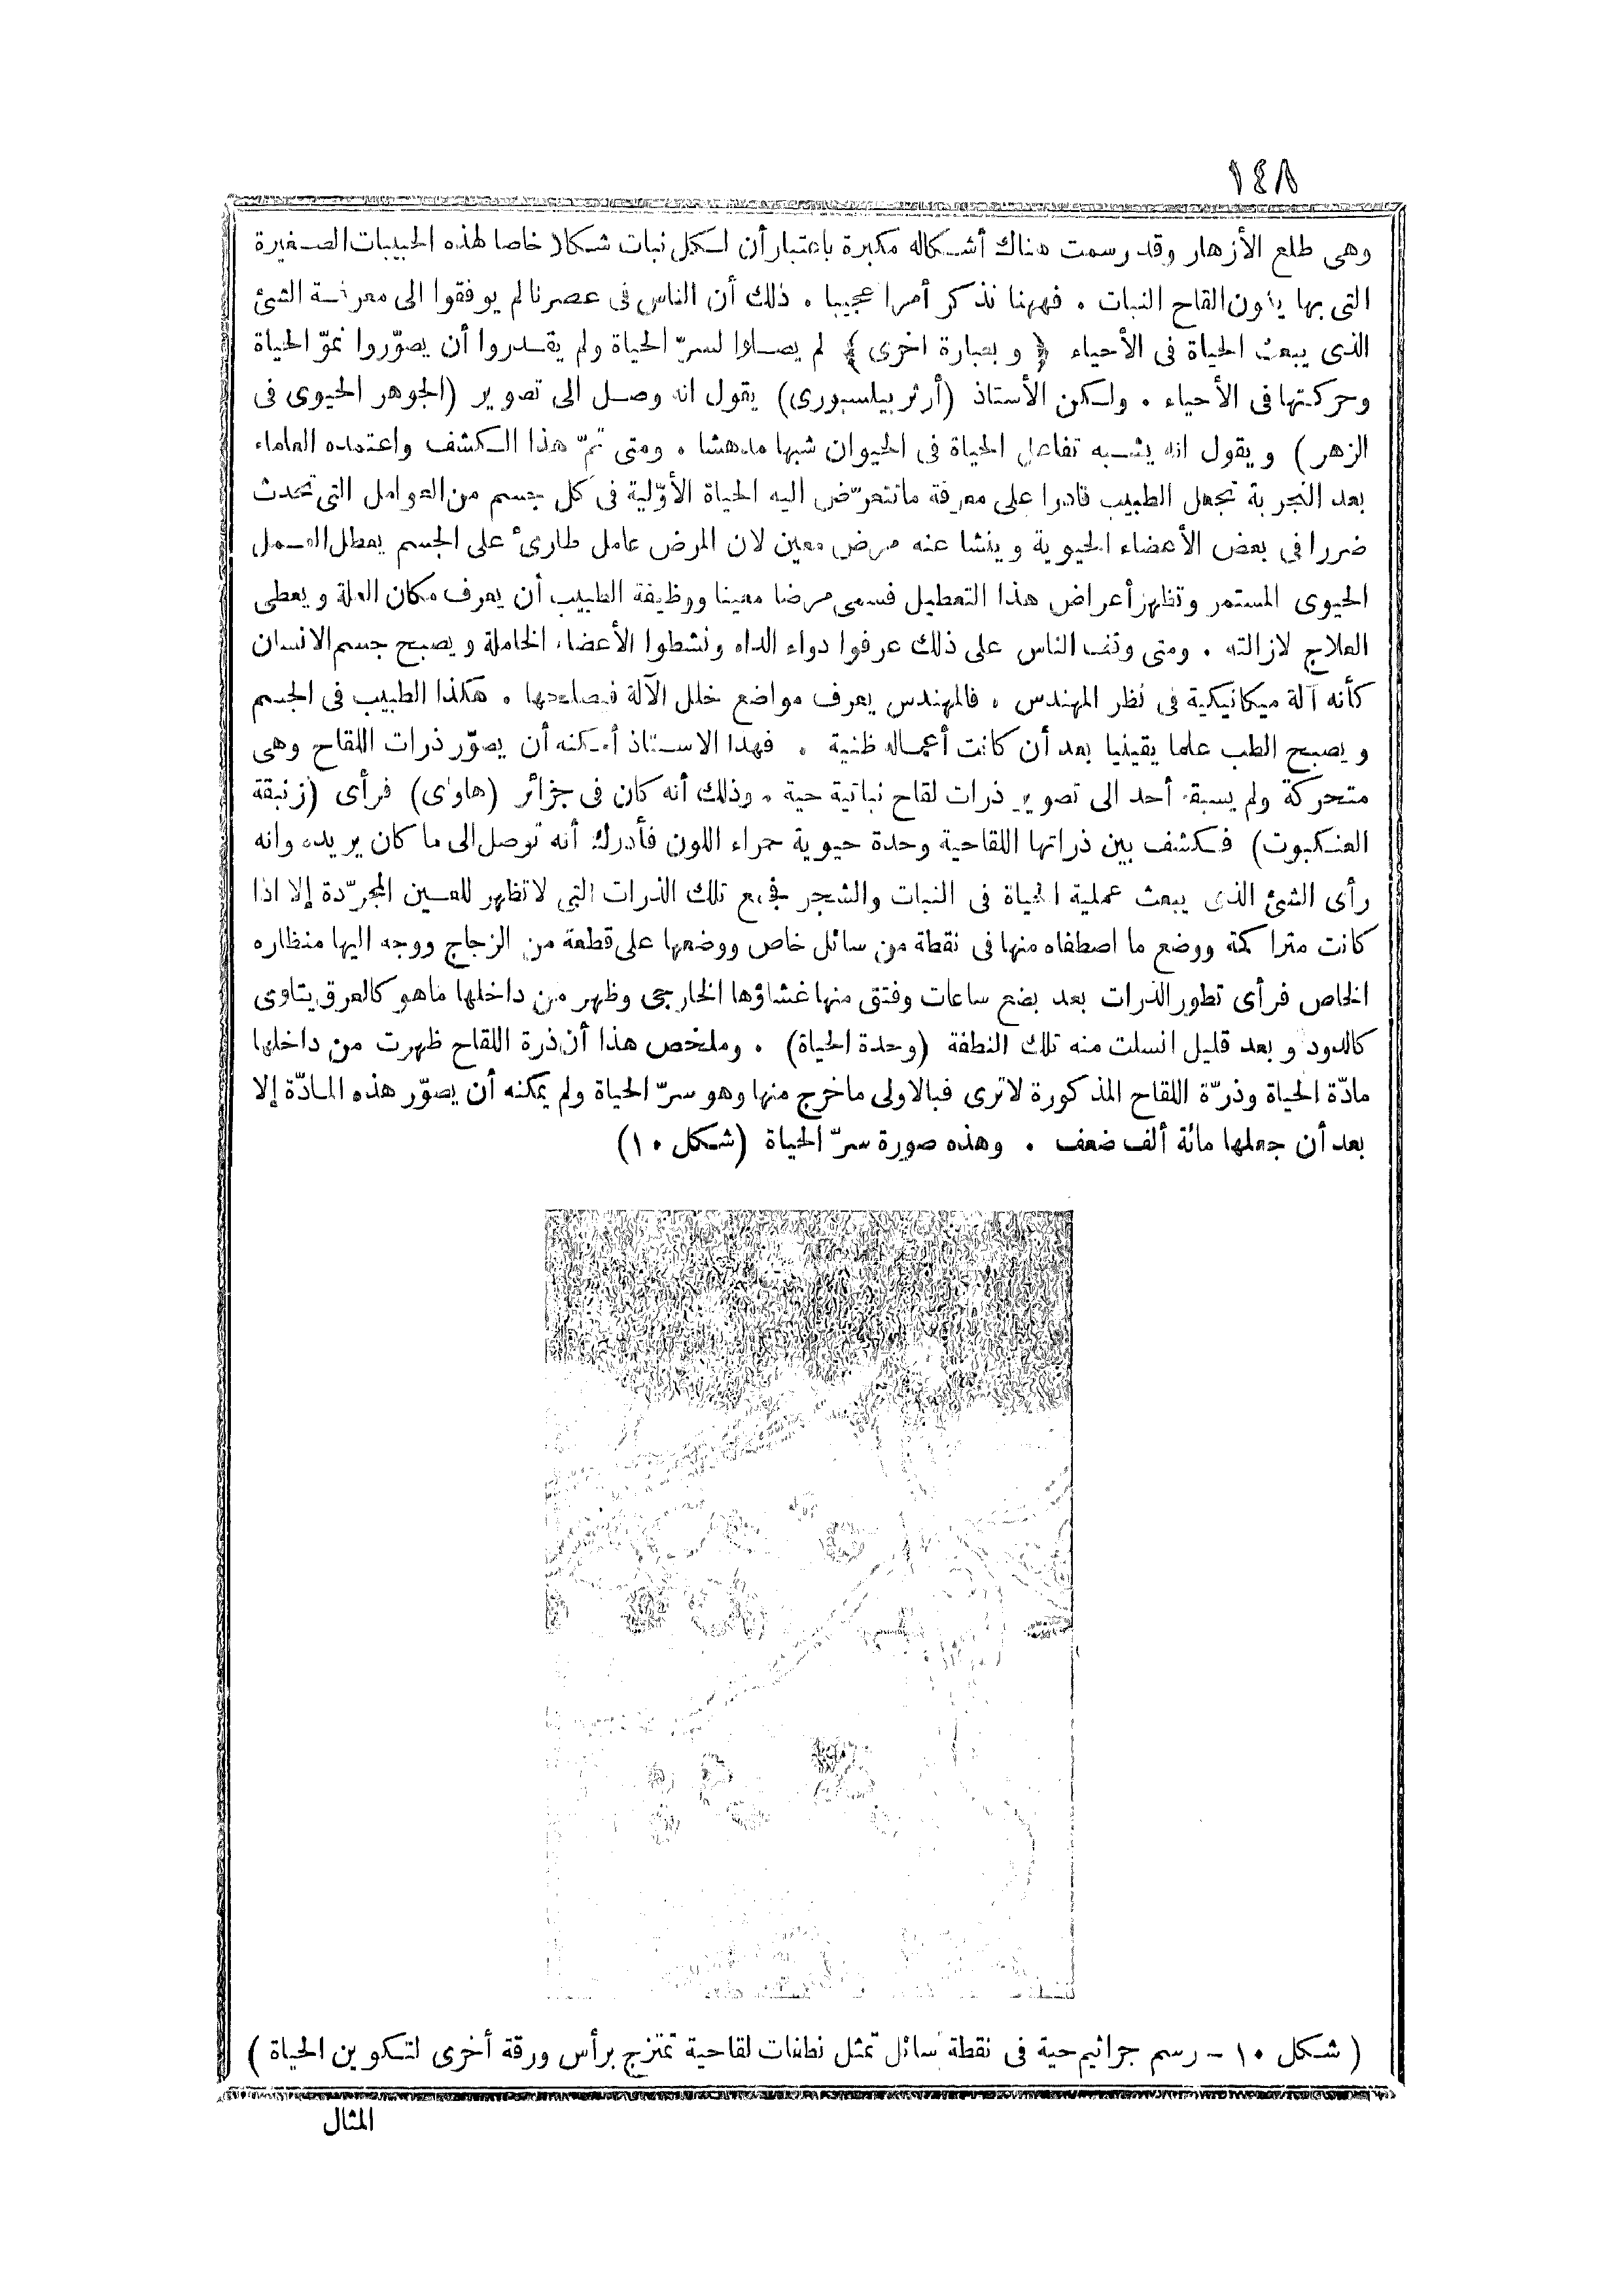 ١٤٨
وهى طلع الأزهار وقد رسمت هناك أشكاله مكبرة باعتبار أن لكل نبات شكلا خاصا لهذه الحبيبات الصغيرة
التى بها يكون القاح النبات . فههنا نذكر أمرا عجيبا . ذلك أن الناس فى عصرنا لم يوفقوا الى معرفة الشئ
الذى يبعث الحياة فى الأحياء ﴿ وبعبارة اخرى ﴾ لم يصلوا لسرّ الحياة ولم يقدروا أن يصوّروا نموّ الحياة
وحركتها فى الأحياء . ولكن الأستاذ (أرثر بيلسبورى) يقول انه وصل الى تصوير (الجوهر الحيوى فى
الزهر) ويقول انه يشبه تفاعل الحياة فى الحيوان شبها مدهشا . ومتى تمّ هذا الكشف واعتمده العلماء
بعد التجربة تجعل الطبيب قادرا على معرفة ماتتعرّض اليه الحياة الأوّلية فى كل جسم من العوامل التى تحدث
ضررا فى بعض الأعضاء الحيوية وينشا عنه مرض معين لان المرض عامل طارئ على الجسم يعطل العمل
الحيوى المستمر وتظهر أعراض هذا التعطيل فسمى مرضا معينا ووظيفة الطبيب أن يعرف مكان العلة ويعطى
العلاج لازالته . ومتى وقف الناس على ذلك عرفوا دواء الداء ونشطوا الأعضاء الخاملة ويصبح جسم الانسان
كأنه آلة ميكانيكية فى نظر المهندس . فالمهندس يعرف مواضع خلل الآلة فيصلحها . هكذا الطبيب فى الجسم
ويصبح الطب علما يقينيا بعد أن كانت أعماله ظنية . فهذا الاستاذ أمكنه أن يصوّر ذرات اللقاح وهى
متحركة ولم يسبقه أحد الى تصوير ذرات لقاح نباتية حية . وذلك أنه كان فى جزائر (هاواى) فرأى (زنبقة
العنكبوت) فكشف بين ذراتها اللقاحية وحدة حيوية حمراء اللون فأدرك أنه توصل الى ما كان يريده وانه
رأى الشئ الذى يبعث عملية الحياة فى النبات والشجر فجمع تلك الذرات التى لاتظهر للعين المجرّدة إلا اذا
كانت متراكمة ووضع ما اصطفاه منها فى نقطة من سائل خاص ووضعها على قطعة من الزجاج ووجه اليها منظاره
الخاص فرأى تطور الذرات بعد بضع ساعات وفتق منها غشاؤها الخارجى وظهر من داخلها ماهو كالعرق يتلوى
كالدود وبعد قليل انسلت منه تلك النطفة (وحدة الحياة) . وملخص هذا أن ذرة اللقاح ظهرت من داخلها
مادّة الحياة وذرّة اللقاح المذكورة لاترى فبالاولى ماخرج منها وهو سرّ الحياة ولم يمكنه أن يصوّر هذه المادّة إلا
بعد أن جعلها مائة ألف ضعف . وهذه صورة سرّ الحياة (شكل ١٠)
( شكل ١٠ ـ رسم جراثيم حية فى نقطة سائل تمثل نطفات لقاحية تمتزج برأس ورقة أخرى لتكوين الحياة )
المثال